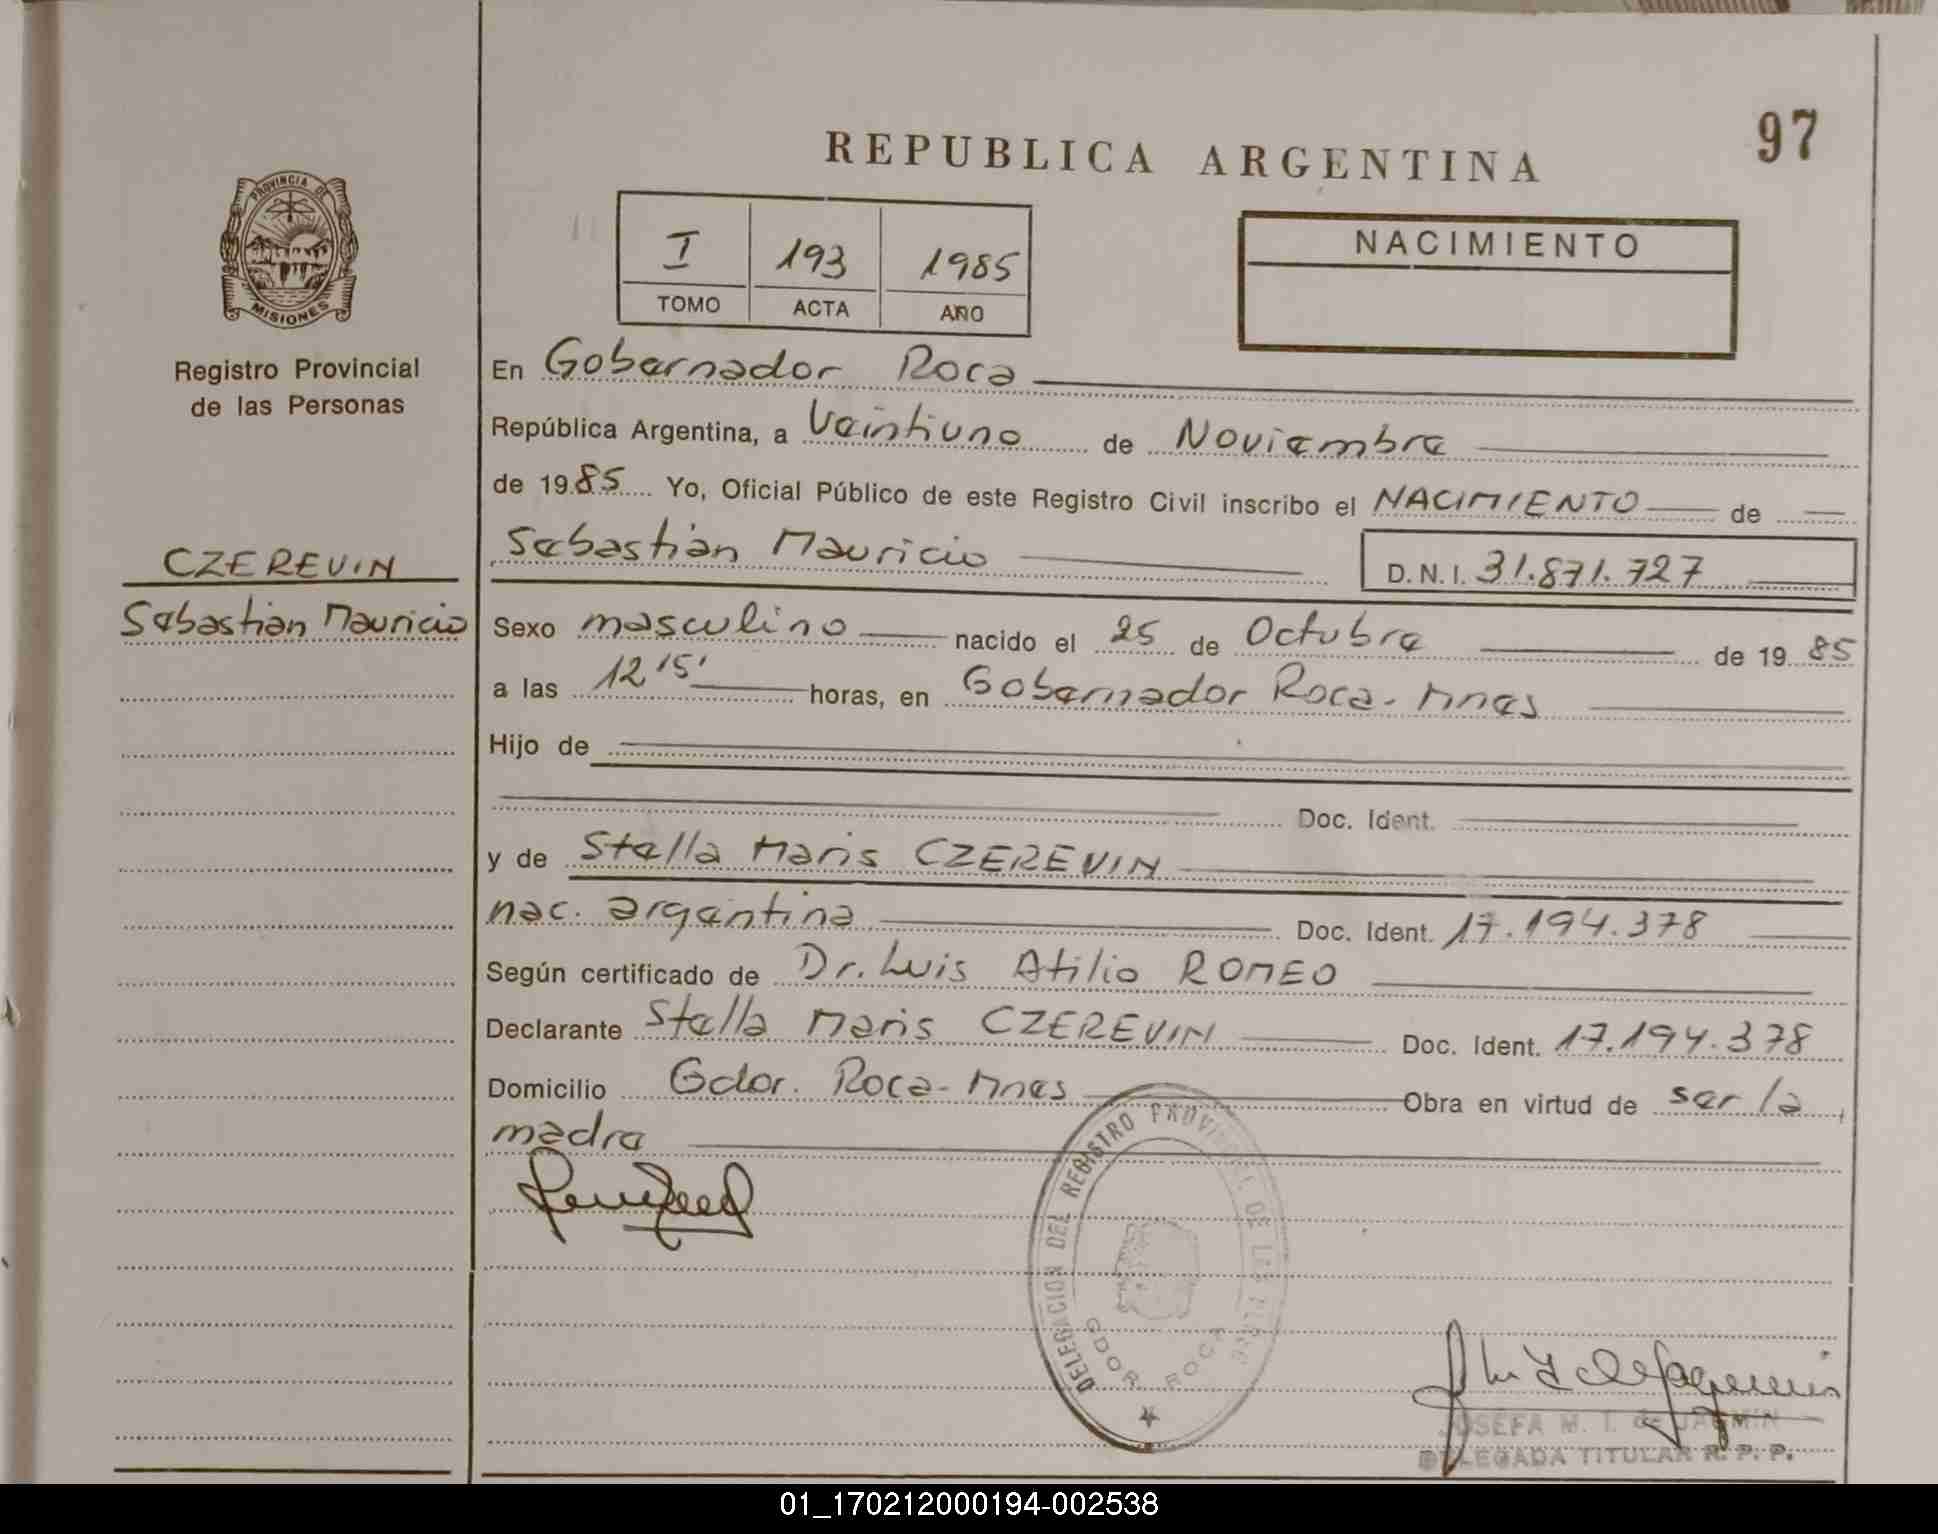 97
REPUBLICA ARGENTINA
PROVINCIA DE
MISIONES
Registro Provincial
de las Personas
I 193 1985
TOMO ACTA AÑO
NACIMIENTO
En Gobernador Roca
República Argentina, a Veintiuno de Noviembre
de 1985 Yo, Oficial Público de este Registro Civil inscribo el NACIMIENTO de
Sebastián Mauricio D.N.I. 31.871.727
CZEREVIN
Sebastián Mauricio
Sexo masculino nacido el 25 de Octubre de 1985
a las 12'15' horas, en Gobernador Roca - Mnes
Hijo de
Doc. Ident.
y de Stella Maris CZEREVIN
nac. argentina Doc. Ident. 17.194.378
Según certificado de Dr. Luis Atilio ROMEO
Declarante Stella Maris CZEREVIN Doc. Ident. 17.194.378
Domicilio Gdor. Roca - Mnes Obra en virtud de ser la
madre
DELEGACION DEL REGISTRO PROVINCIAL DE LAS
GDOR. ROCA
JOSEFA M. I. de JACMIN
DELEGADA TITULAR R. P. P.
01_170212000194-002538